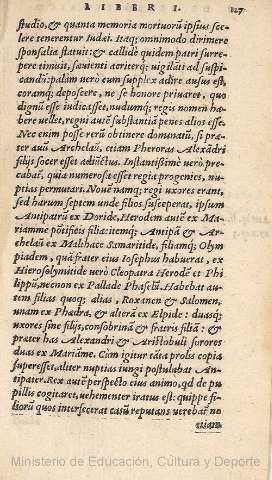 LIBER I. 127
studio, & quanta memoria mortuorũ ipsius sce-
lere tenerentur Iudæi. Itaq; omnimodo dirimere
sponsalia statuit: & callidè quidem patri surre-
pere timuit, sæuienti acriterq; uigilãti ad suspi-
candũ: palam uerò eum supplex adire ausus est,
coramq; deposcere, ne se honore priuaret, quo
dignũ esse iudicasset, nudumq; regis nomen ha-
bere uellet, regni autẽ substantiã penes alios esse.
Nec enim posse rerũ obtinere dominatũ, si præ-
ter auũ Archelaũ, etiam Pheroras Alexãdri
filijs socer esset adiũctus. Instantissimè uerò, pre-
cabat̃, quia numerosa esset regia progenies, nu-
ptias permutari. Nouẽ namq; regi uxores erant,
sed harum septem unde filios susceperat, ipsum
Antipatrũ ex Doride, Herodem autẽ ex Ma-
riamme põtificis filia: itemq; Antipã & Ar-
chelaũ ex Malthace Samaritide, filiamq; Olym
piadem, quã frater eius Iosephus habuerat, ex
Hierosolymitide uerò Cleopatra Herodẽ et Phi
lippũ, necnon ex Pallade Phaselũ. Habebat au-
tem filias quoq; alias, Roxanen & Salomen,
unam ex Phædra, & alterã ex Elpide: duasq;
uxores sine filijs, consobrinã & fratris filiã: &
præter has Alexandri & Aristobuli sorores
duas ex Mariãme. Cum igitur tãta prolis copia
superesset, aliter nuptias iungi postulabat An-
tipater. Rex autẽ perspecto eius animo, qd de pu
pillis cogitaret, uehementer iratus est: quippe fi-
liorũ quos interfecerat casũ reputans uerebat̃ ne
etiam
Ministerio de Educación, Cultura y Deporte